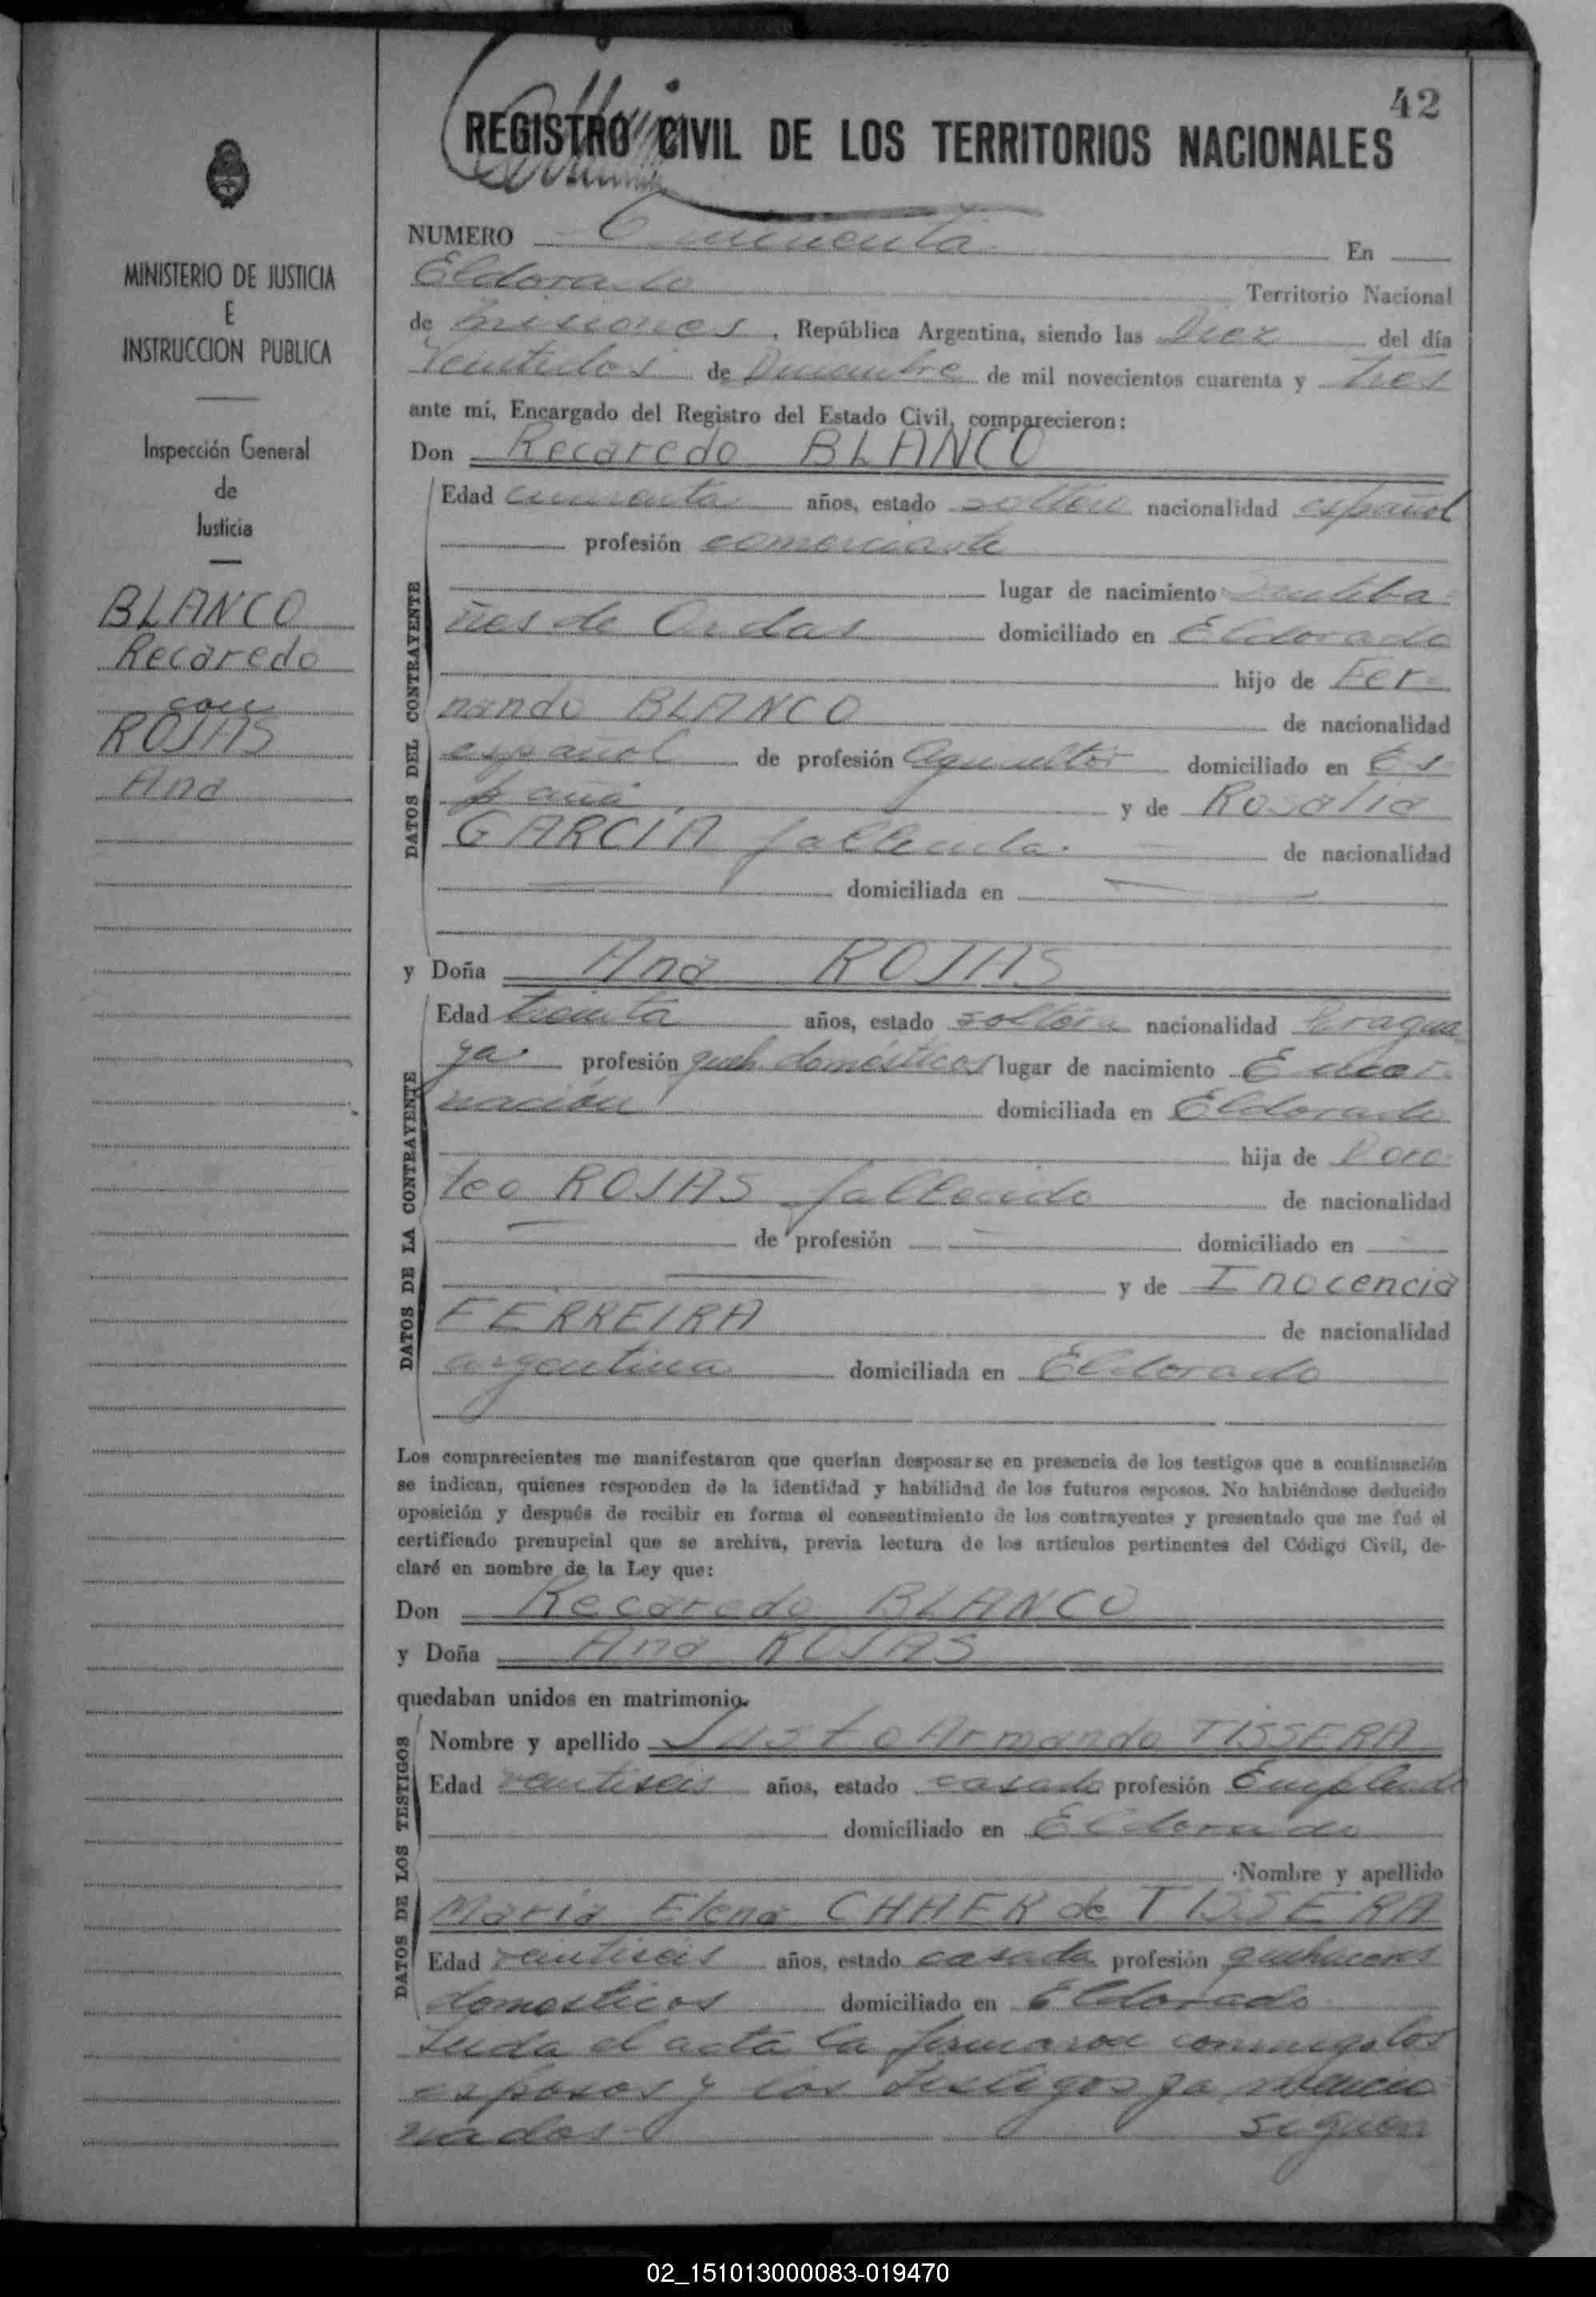 42
REGISTRO CIVIL DE LOS TERRITORIOS NACIONALES
MINISTERIO DE JUSTICIA
E
INSTRUCCION PUBLICA
Inspección General
de
Justicia
BLANCO
Recaredo
con
ROJAS
Ana
NUMERO Cincuenta En
Eldorado Territorio Nacional
de Misiones, República Argentina, siendo las Diez del día
Veintidos de Diciembre de mil novecientos cuarenta y tres
ante mí, Encargado del Registro del Estado Civil, comparecieron:
Don Recaredo BLANCO
DATOS DEL CONTRAYENTE
Edad cuarenta años, estado soltero nacionalidad español
profesión comerciante
lugar de nacimiento Santiba
ñes de Ordas domiciliado en Eldorado
hijo de Fer=
nando BLANCO de nacionalidad
español de profesión Agricultor domiciliado en Es
paña y de Rosalia
GARCIA fallecida. de nacionalidad
domiciliada en
y Doña Ana ROJAS
DATOS DE LA CONTRAYENTE
Edad treinta años, estado soltera nacionalidad Paragua
ya profesión queh. domésticos lugar de nacimiento Encar
nación domiciliada en Eldorado
hija de Doro
teo ROJAS fallecido de nacionalidad
de profesión domiciliado en
y de Inocencia
FERREIRA de nacionalidad
argentina domiciliada en Eldorado
Los comparecientes me manifestaron que querían desposarse en presencia de los testigos que a continuación
se indican, quienes responden de la identidad y habilidad de los futuros esposos. No habiéndose deducido
oposición y después de recibir en forma el consentimiento de los contrayentes y presentado que me fué el
certificado prenupcial que se archiva, previa lectura de los artículos pertinentes del Código Civil, de-
claré en nombre de la Ley que:
Don Recaredo BLANCO
y Doña Ana ROJAS
quedaban unidos en matrimonio.
DATOS DE LOS TESTIGOS
Nombre y apellido Justo Armando TISSERA
Edad veintiseis años, estado casado profesión Empleado
domiciliado en Eldorado
Nombre y apellido
María Elena CHHER de TISSERA
Edad veintiseis años, estado casada profesión quehaceres
domesticos domiciliado en Eldorado
Leida el acta la firmaron conmigo los
esposos y los testigos ya mencio
nados= siguen
02_151013000083-019470